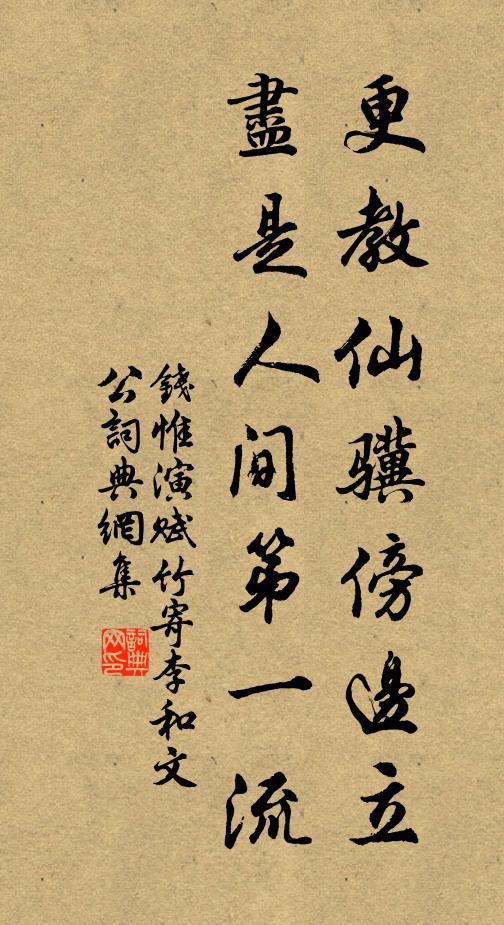 更教仙驥傍邊立
盡是人間第一流
錢惟演賦竹寄李和文
公詞典網集
詞典網印